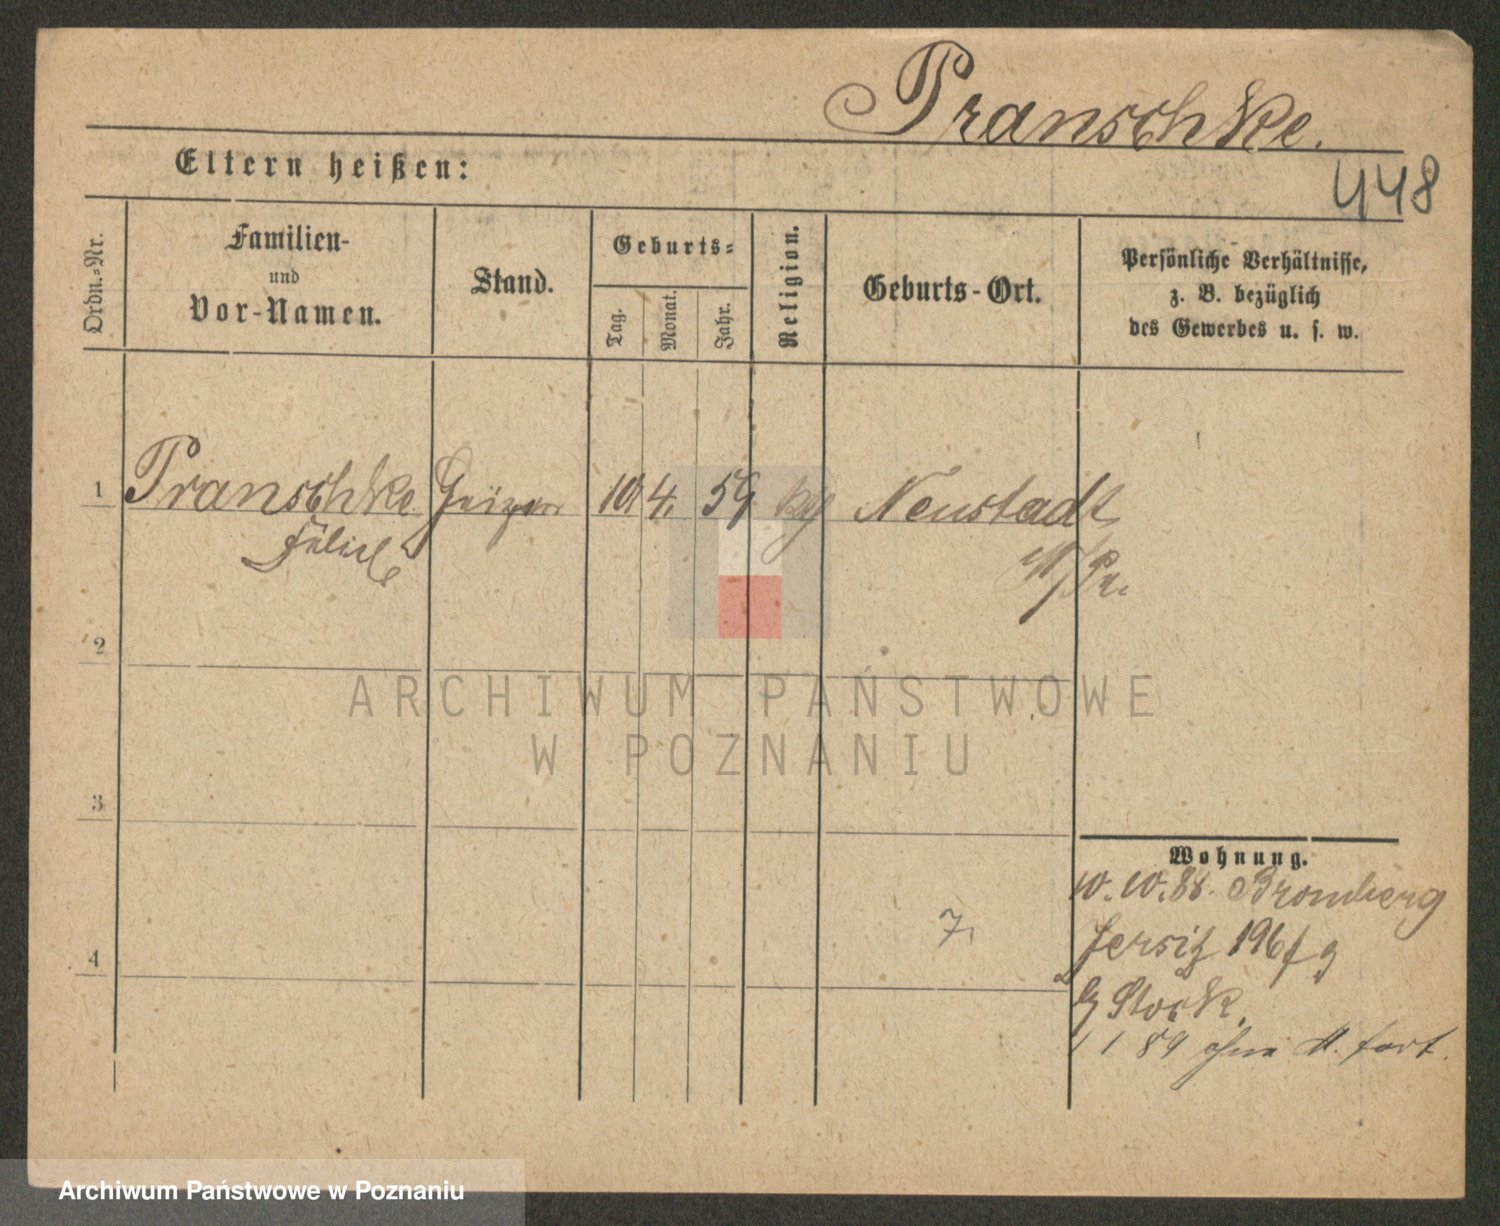 Pranschke.
448
Eltern heißen:
Ordn.-Nr.
Familien-
und
Vor-Namen.
Stand.
Geburts-
Tag.
Monat.
Jahr.
Religion.
Geburts-Ort.
Persönliche Verhältnisse,
z. B. bezüglich
des Gewerbes u. s. w.
1 Pranschke Heizer 10. 4. 59 Neustadt
W/Pr.
2
ARCHIWUM PAŃSTWOWE
W POZNANIU
3
4
Wohnung.
10. 10. 88. Bromberg
7.
Jersitz 196
Stock.
1 1 89 ohne A. fort.
Archiwum Państwowe w Poznaniu